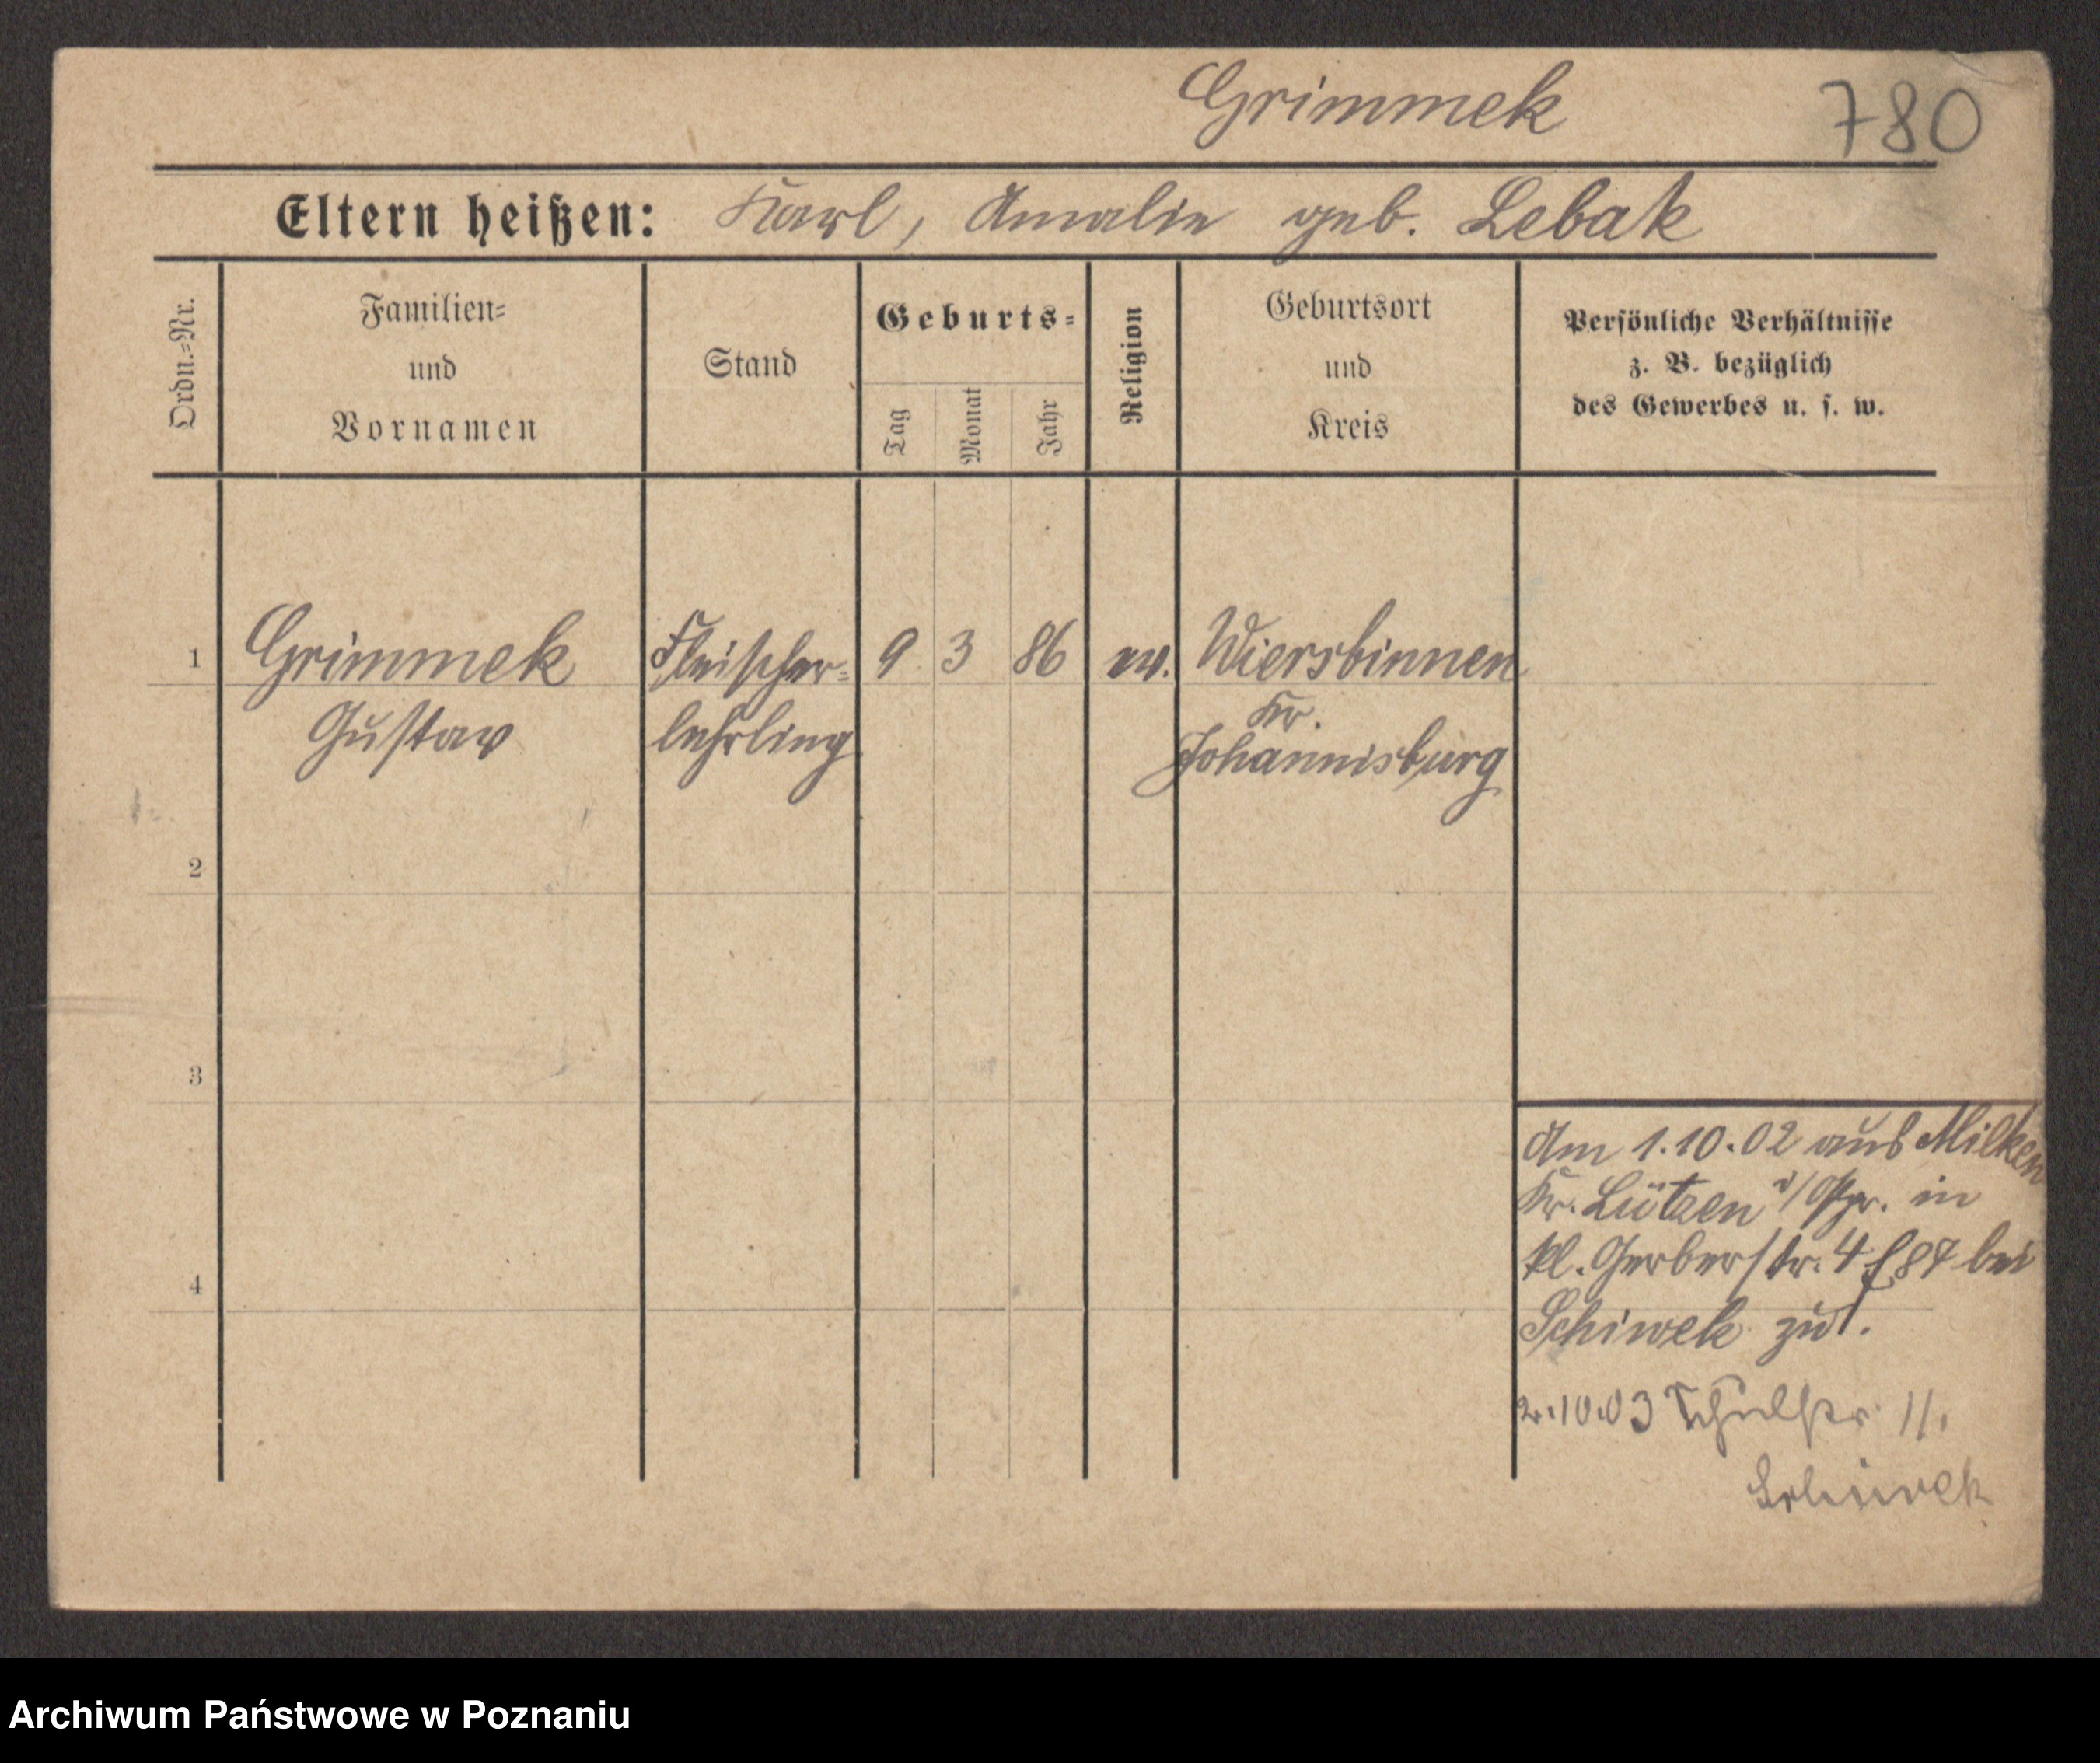 Grimmek
780
Eltern heißen: Karl, Amalie geb. Lebak
Ordn.=Nr.
Familien=
und
Vornamen
Stand
Geburts=
Tag
Monat
Jahr
Religion
Geburtsort
und
Kreis
Persönliche Verhältnisse
z. B. bezüglich
des Gewerbes u. s. w.
1 Grimmek Fleischer= 9 3 86 ev. Wiersbinnen
Kr.
Gustav lehrling Johannisburg
2
3
4
Am 1.10.02 aus Milken
Kr. Lützen i/Opr. in
kl. Gerberstr. 4 f 87 bei
Schiwek zu1.
2.10.03 Schulstr 11.
Schiwek
Archiwum Państwowe w Poznaniu